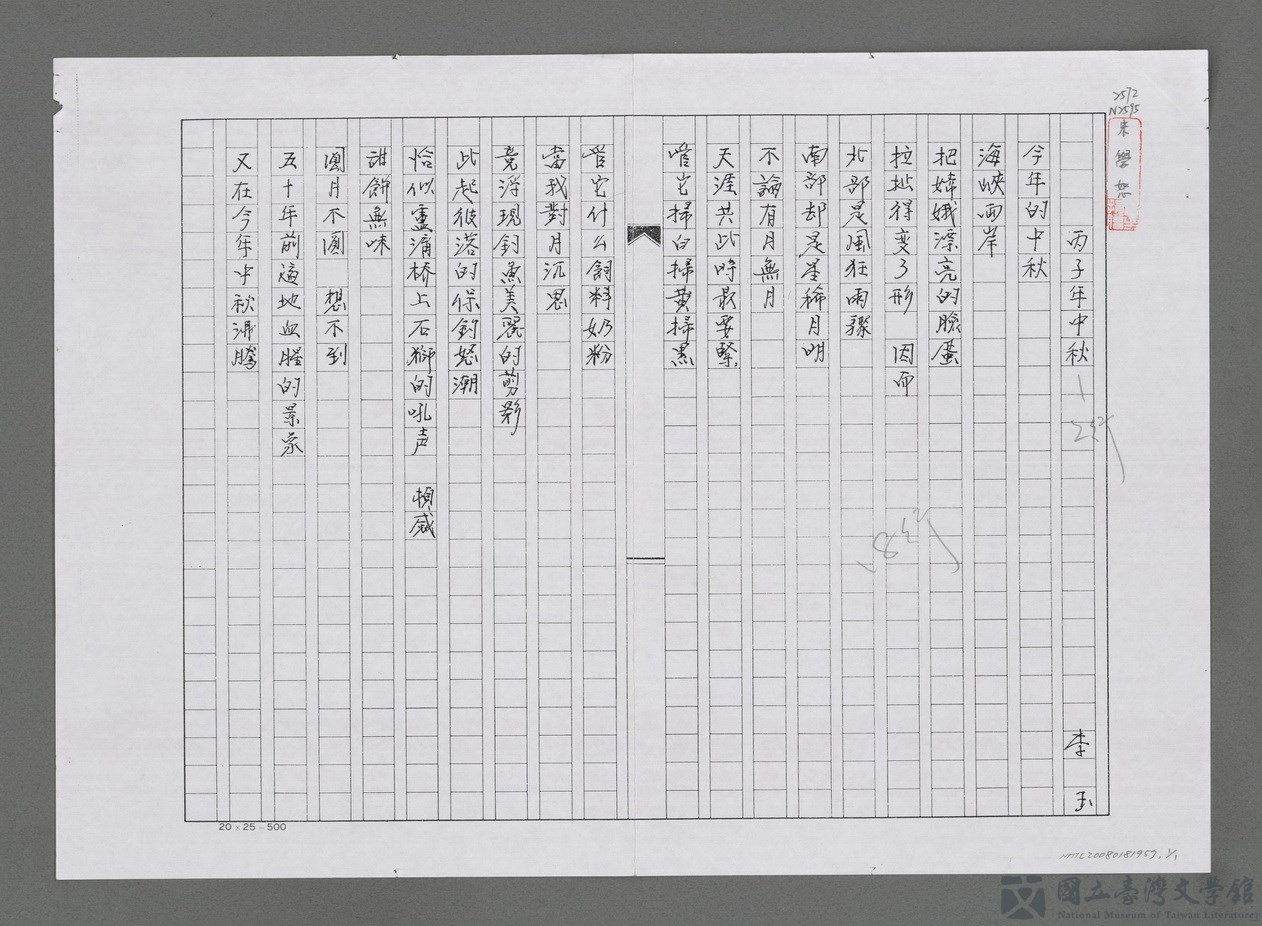 2572
N2595
朱學恕
丙子年中秋
李玉
今年的中秋
海峽両岸
把嫦娥漂亮的臉蛋
拉扯得变了形 因而
北部是風狂雨驟
南部却是星稀月明
不論有月無月
天涯共此時最要緊
管它掃白掃黄掃黑
管它什么飼料奶粉
當我對月沉思
竟浮現釣魚美麗的剪影
此起彼落的保釣怒潮
恰似盧溝橋上石獅的吼声 頓感
甜餅無味
圓月不圓 想不到
五十年前遍地血腥的景象
又在今年中秋沸騰
18行
20×25=500
NMTL20080181957, 1/1
國立臺灣文學館
National Museum of Taiwan Literature